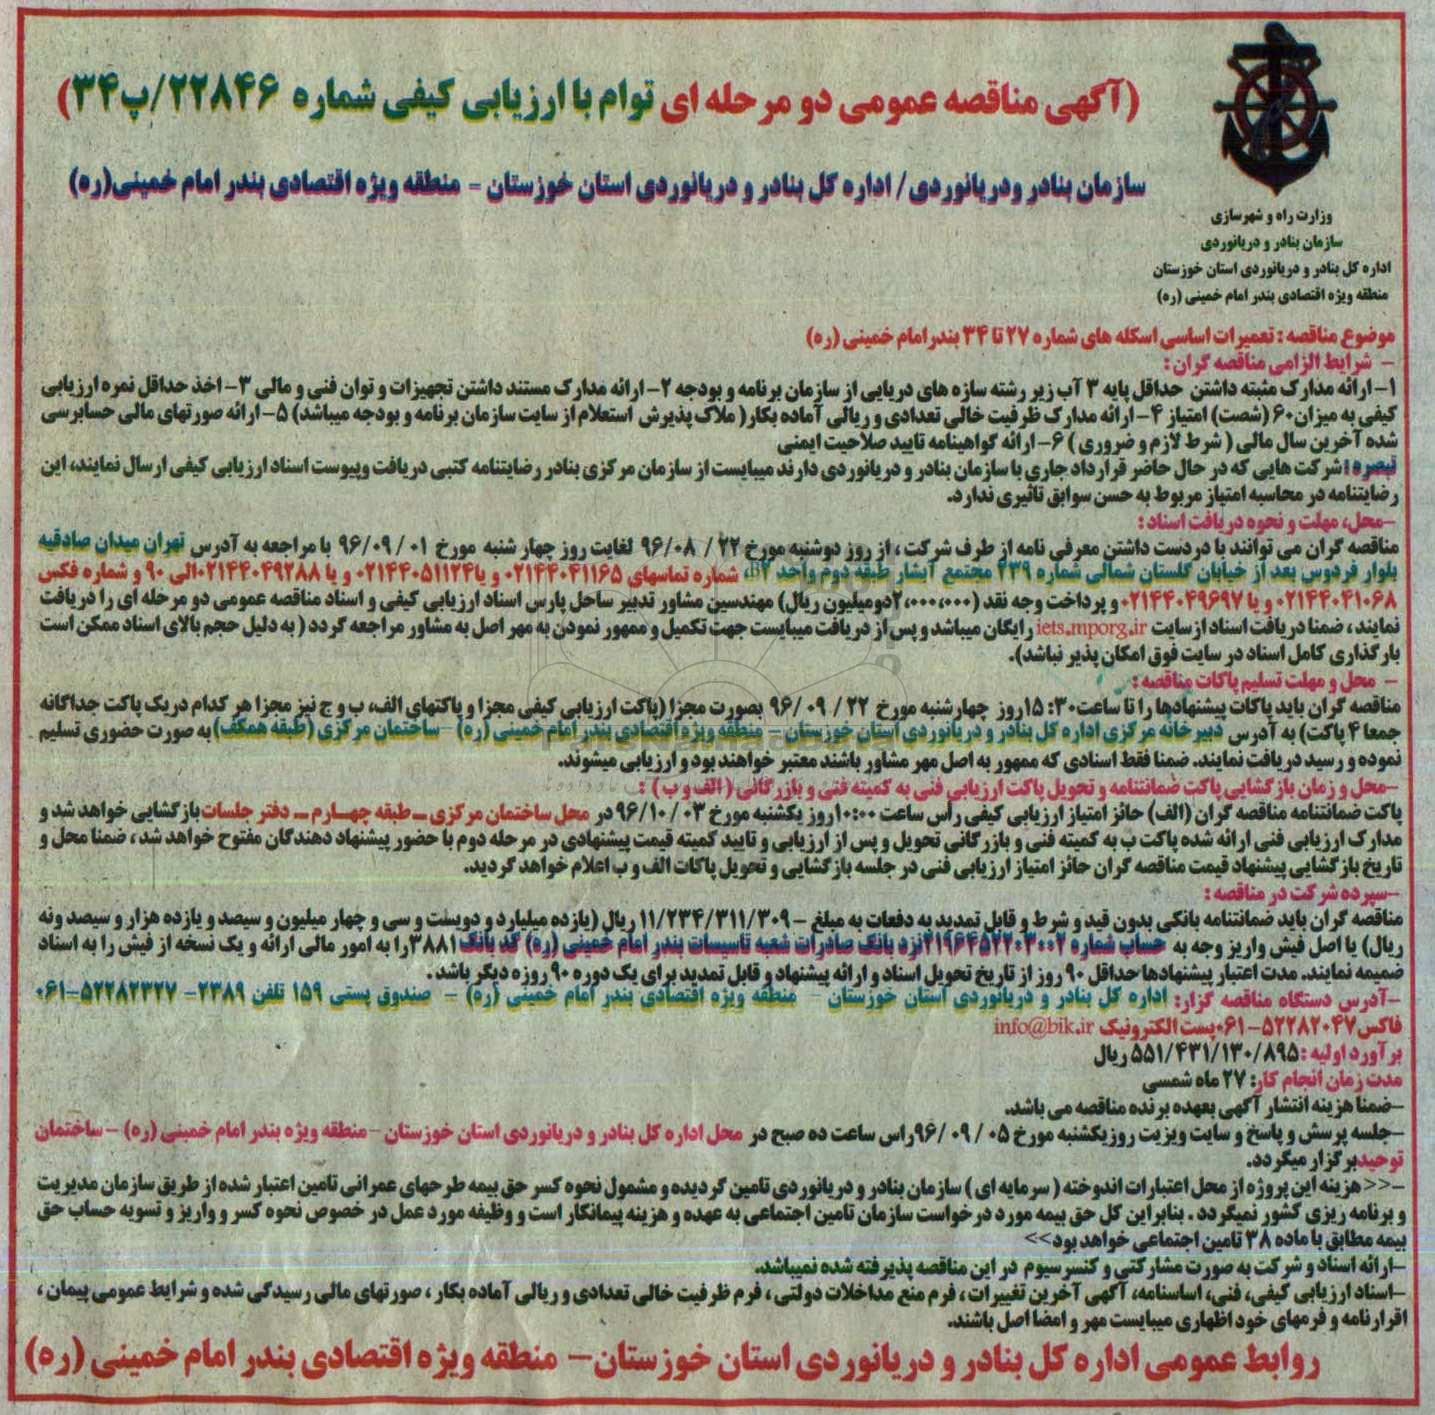 (آگهی مناقصه عمومی دو مرحله ای توام با ارزیابی کیفی شماره ۲۲۸۴۶/پ۳۴)
سازمان بنادر ودریانوردی/ اداره کل بنادر و دریانوردی استان خوزستان - منطقه ویژه اقتصادی بندر امام خمینی(ره)
وزارت راه و شهرسازی
سازمان بنادر و دریانوردی
اداره کل بنادر و دریانوردی استان خوزستان
منطقه ویژه اقتصادی بندر امام خمینی (ره)
موضوع مناقصه : تعمیرات اساسی اسکله های شماره ۲۷ تا ۳۴ بندرامام خمینی (ره)
- شرایط الزامی مناقصه گران :
۱-ارائه مدارک مثبته داشتن حداقل پایه ۳ آب زیر رشته سازه های دریایی از سازمان برنامه و بودجه ۲- ارائه مدارک مستند داشتن تجهیزات و توان فنی و مالی ۳- اخذ حداقل نمره ارزیابی
کیفی به میزان۶۰ (شصت) امتیاز ۴- ارائه مدارک ظرفیت خالی تعدادی و ریالی آماده بکار( ملاک پذیرش استعلام از سایت سازمان برنامه و بودجه میباشد) ۵- ارائه صورتهای مالی حسابرسی
شده آخرین سال مالی ( شرط لازم و ضروری ) ۶- ارائه گواهینامه تایید صلاحیت ایمنی
تبصره : شرکت هایی که در حال حاضر قرارداد جاری با سازمان بنادر و دریانوردی دارند میبایست از سازمان مرکزی بنادر رضایتنامه کتبی دریافت وپیوست اسناد ارزیابی کیفی ارسال نمایند، این
رضایتنامه در محاسبه امتیاز مربوط به حسن سوابق تاثیری ندارد.
-محل، مهلت و نحوه دریافت اسناد :
مناقصه گران می توانند با دردست داشتن معرفی نامه از طرف شرکت ، از روز دوشنبه مورخ ۲۲ / ۰۸ /۹۶ لغایت روز چهار شنبه مورخ ۰۱ / ۰۹ /۹۶ با مراجعه به آدرس تهران میدان صادقیه
بلوار فردوس بعد از خیابان گلستان شمالی شماره ۲۳۹ مجتمع آبشار طبقه دوم واحد B۲، شماره تماسهای ۰۲۱۴۴۰۴۱۱۶۵ و یا۰۲۱۴۴۰۵۱۱۲۴ و یا ۰۲۱۴۴۰۴۹۲۸۸الی ۹۰ و شماره فکس
۰۲۱۴۴۰۴۱۰۶۸ و یا ۰۲۱۴۴۰۴۹۶۹۷ و پرداخت وجه نقد (۲،۰۰۰،۰۰۰دومیلیون ریال) مهندسین مشاور تدبیر ساحل پارس اسناد ارزیابی کیفی و اسناد مناقصه عمومی دو مرحله ای را دریافت
نمایند ، ضمنا دریافت اسناد ازسایت iets.mporg.ir رایگان میباشد و پس از دریافت میبایست جهت تکمیل و ممهور نمودن به مهر اصل به مشاور مراجعه گردد ( به دلیل حجم بالای اسناد ممکن است
بارگذاری کامل اسناد در سایت فوق امکان پذیر نباشد).
- محل و مهلت تسلیم پاکات مناقصه :
مناقصه گران باید پاکات پیشنهادها را تا ساعت۱۵:۳۰روز چهارشنبه مورخ ۲۲ / ۰۹ /۹۶ بصورت مجزا (پاکت ارزیابی کیفی مجزا و پاکتهای الف، ب و ج نیز مجزا هر کدام دریک پاکت جداگانه
جمعا ۴ پاکت) به آدرس دبیرخانه مرکزی اداره کل بنادر و دریانوردی استان خوزستان - منطقه ویژه اقتصادی بندر امام خمینی (ره) -ساختمان مرکزی (طبقه همکف) به صورت حضوری تسلیم
نموده و رسید دریافت نمایند. ضمنا فقط اسنادی که ممهور به اصل مهر مشاور باشند معتبر خواهند بود و ارزیابی میشوند.
-محل و زمان بازگشایی پاکت ضمانتنامه و تحویل پاکت ارزیابی فنی به کمیته فنی و بازرگانی ( الف و ب ) :
پاکت ضمانتنامه مناقصه گران (الف) حائز امتیاز ارزیابی کیفی رأس ساعت ۱۰:۰۰روز یکشنبه مورخ ۰۳ / ۱۰ /۹۶ در محل ساختمان مرکزی – طبقه چهارم – دفتر جلسات بازگشایی خواهد شد و
مدارک ارزیابی فنی ارائه شده پاکت ب به کمیته فنی و بازرگانی تحویل و پس از ارزیابی و تایید کمیته قیمت پیشنهادی در مرحله دوم با حضور پیشنهاد دهندگان مفتوح خواهد شد ، ضمنا محل و
تاریخ بازگشایی پیشنهاد قیمت مناقصه گران حائز امتیاز ارزیابی فنی در جلسه بازگشایی و تحویل پاکات الف و ب اعلام خواهد گردید.
-سپرده شرکت در مناقصه :
مناقصه گران باید ضمانتنامه بانکی بدون قید و شرط و قابل تمدید به دفعات به مبلغ - ۱۱/۲۳۴/۳۱۱/۳۰۹ ریال (یازده میلیارد و دویست و سی و چهار میلیون و سیصد و یازده هزار و سیصد ونه
ریال) یا اصل فیش واریز وجه به حساب شماره ۲۱۹۶۴۵۲۲۰۳۰۰۲نزد بانک صادرات شعبه تاسیسات بندر امام خمینی (ره) کد بانک ۳۸۸۱را به امور مالی ارائه و یک نسخه از فیش را به اسناد
ضمیمه نمایند. مدت اعتبار پیشنهادها حداقل ۹۰ روز از تاریخ تحویل اسناد و ارائه پیشنهاد و قابل تمدید برای یک دوره ۹۰ روزه دیگر باشد .
-آدرس دستگاه مناقصه گزار: اداره کل بنادر و دریانوردی استان خوزستان - منطقه ویژه اقتصادی بندر امام خمینی (ره) - صندوق پستی ۱۵۹ تلفن ۲۳۸۹- ۵۲۲۸۲۳۲۷-۰۶۱
فاکس۵۲۲۸۲۰۴۷-۰۶۱پست الکترونیک info@bik.ir
برآورد اولیه :۵۵۱/۴۳۱/۱۳۰/۸۹۵ ریال
مدت زمان انجام کار: ۲۷ ماه شمسی
-ضمنا هزینه انتشار آگهی بعهده برنده مناقصه می باشد.
-جلسه پرسش و پاسخ و سایت ویزیت روزیکشنبه مورخ ۰۵ / ۰۹ /۹۶راس ساعت ده صبح در محل اداره کل بنادر و دریانوردی استان خوزستان -منطقه ویژه بندر امام خمینی (ره) - ساختمان
توحیدبرگزار میگردد.
-<< هزینه این پروژه از محل اعتبارات اندوخته ( سرمایه ای ) سازمان بنادر و دریانوردی تامین گردیده و مشمول نحوه کسر حق بیمه طرحهای عمرانی تامین اعتبار شده از طریق سازمان مدیریت
و برنامه ریزی کشور نمیگردد . بنابراین کل حق بیمه مورد درخواست سازمان تامین اجتماعی به عهده و هزینه پیمانکار است و وظیفه مورد عمل در خصوص نحوه کسر و واریز و تسویه حساب حق
بیمه مطابق با ماده ۳۸ تامین اجتماعی خواهد بود>>
-ارائه اسناد و شرکت به صورت مشارکتی و کنسرسیوم در این مناقصه پذیرفته شده نمیباشد.
-اسناد ارزیابی کیفی، فنی، اساسنامه، آگهی آخرین تغییرات ، فرم منع مداخلات دولتی ، فرم ظرفیت خالی تعدادی و ریالی آماده بکار ، صورتهای مالی رسیدگی شده و شرایط عمومی پیمان ،
اقرارنامه و فرمهای خود اظهاری میبایست مهر و امضا اصل باشند.
روابط عمومی اداره کل بنادر و دریانوردی استان خوزستان- منطقه ویژه اقتصادی بندر امام خمینی (ره)